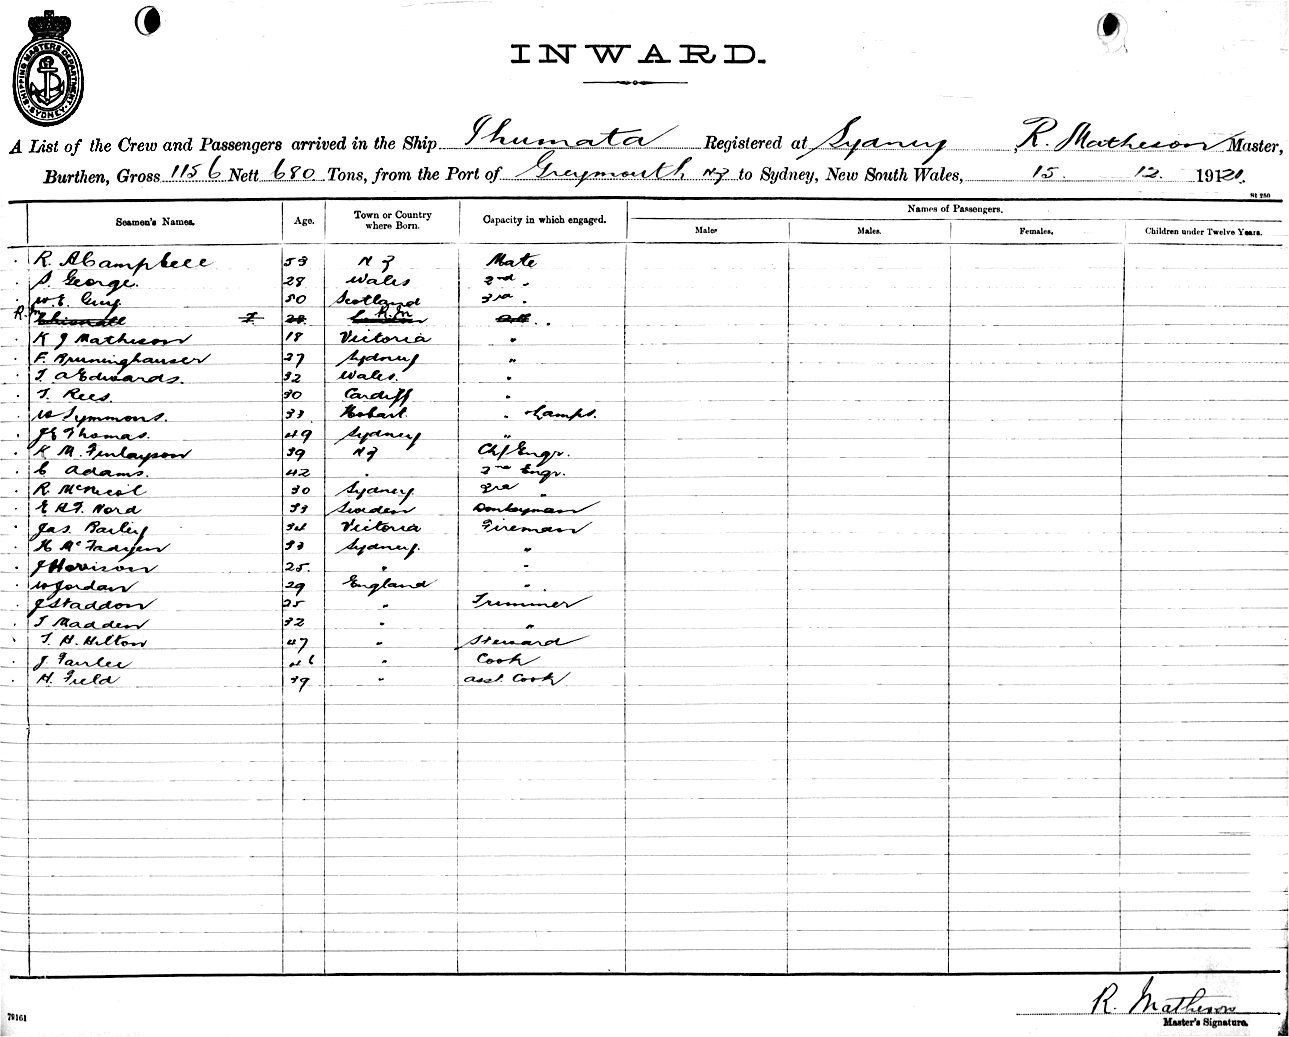 SHIPPING MASTERS DEPARTMENT SYDNEY
INWARD.
A List of the Crew and Passengers arrived in the Ship Registered at Sydney, R. Matheson Master,
Burthen, Gross 1156 Nett 680 Tons, from the Port of Greymouth NZ to Sydney, New South Wales, 15. 12. 1921.
St 250
Seamen's Names. Age. Town or Country where Born. Capacity in which engaged. Names of Passengers.
Males Males. Females. Children under Twelve Years.
R. A Campbell 53 NZ Mate
S. George. 28 Wales 2nd "
W. E. Guy. 50 Scotland 3rd "
R.M R.M
K J Matheson 18 Victoria "
F. Bruninghauser 27 Sydney "
T. A Edwards. 32 Wales. "
T. Rees. 30 Cardiff "
W Symmons. 33 Hobart " Lamps.
J E Thomas. 49 Sydney "
K. M. Finlayson 39 NZ Chf Engr.
C Adams. 42 " 2nd Engr.
R. McNicol 30 Sydney 3rd "
E H F. Nord 33 Sweden Donkeyman
Jas. Barley 34 Victoria Fireman
H McFadyen 33 Sydney. "
J Horrison 25. " "
W Jordan 29 England "
J Staddon 25 " Trimmer
T Madden 32 " "
T. H. Hilton 47 " Steward
J. Fairlee 46 " Cook
H. Field 39 " asst. Cook
R. Matheson
Master's Signature.
79161